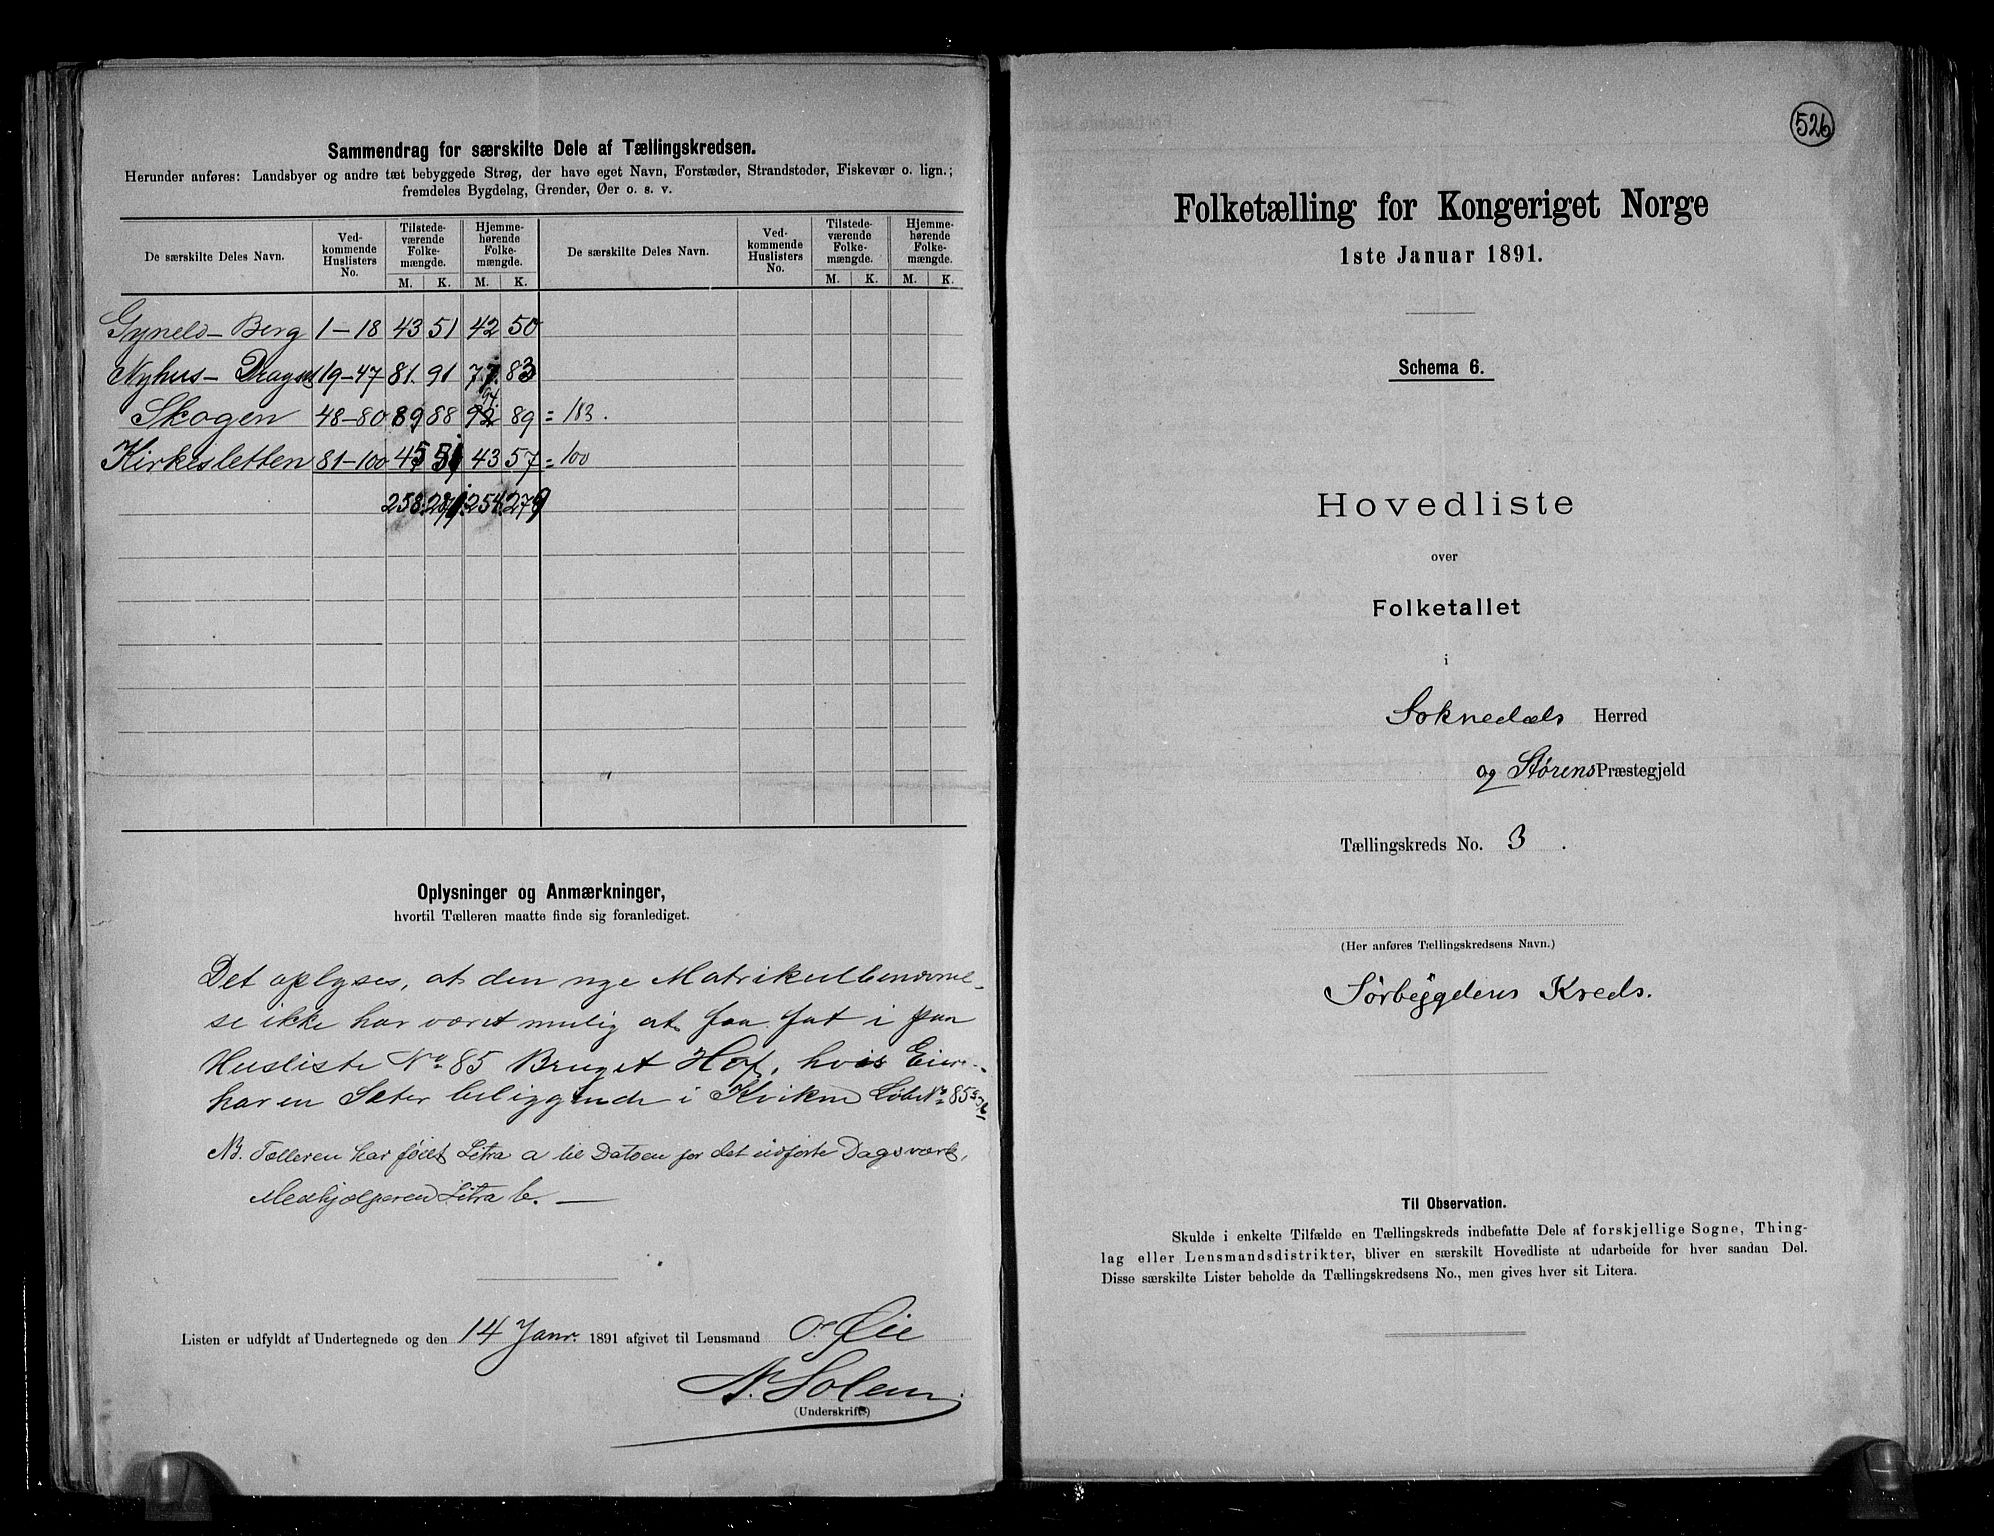 Sammendrag for særskilte Dele af Tællingskredsen.
Herunder anføres: Landsbyer og andre tæt bebyggede Strøg, der have eget Navn, Forstæder, Strandsteder, Fiskevær o. lign.;
fremdeles Bygdelag, Grender, Øer o. s. v.
De særskilte Deles Navn. Ved-kommende Huslisters No. Tilstede-værende Folke-mængde. Hjemme-hørende Folke-mængde. De særskilte Deles Navn. Ved-kommende Huslisters No. Tilstede-værende Folke-mængde. Hjemme-hørende Folke-mængde.
M. K. M. K. M. K. M. K.
Gyneld-Berg 1-18 43 51 42 50
Nyhus- 19-47 81. 91 77. 83
94.
Skogen 48-80 89 88 92 89 = 183.
Kirkesletten 81-100 45 51 43 57 = 100
258. 254. 279
Oplysninger og Anmærkninger,
hvortil Tælleren maatte finde sig foranlediget.
Det oplyses, at den nye Matrikulbenævnel-
se ikke har været mulig at faa fat i paa
Husliste No 85 Bruget Hof, hvis Eier
har en Sæter beliggende i Kvikne
NB. Tælleren har føiet Litra a til Datoen for det udførte Dagsværk,
Medhjælperen Litra b. —
Listen er udfyldt af Undertegnede og den 14 Janr. 1891 afgivet til Lensmand O. Øie
N. Solem
(Underskrift.)
526
Folketælling for Kongeriget Norge
1ste Januar 1891.
Schema 6.
Hovedliste
over
Folketallet
i
Soknedals Herred
og Størens Præstegjeld
Tællingskreds No. 3.
(Her anføres Tællingskredsens Navn.)
Sørbygdens Kreds.
Til Observation.
Skulde i enkelte Tilfælde en Tællingskreds indbefatte Dele af forskjellige Sogne, Thing-
lag eller Lensmandsdistrikter, bliver en særskilt Hovedliste at udarbeide for hver saadan Del.
Disse særskilte Lister beholde da Tællingskredsens No., men gives hver sit Litera.